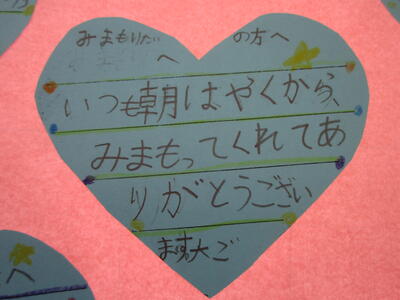 みまもりたい の方へ
へ
いつも朝はやくから、
みまもってくれてあ
りがとうござい
ます。大ご